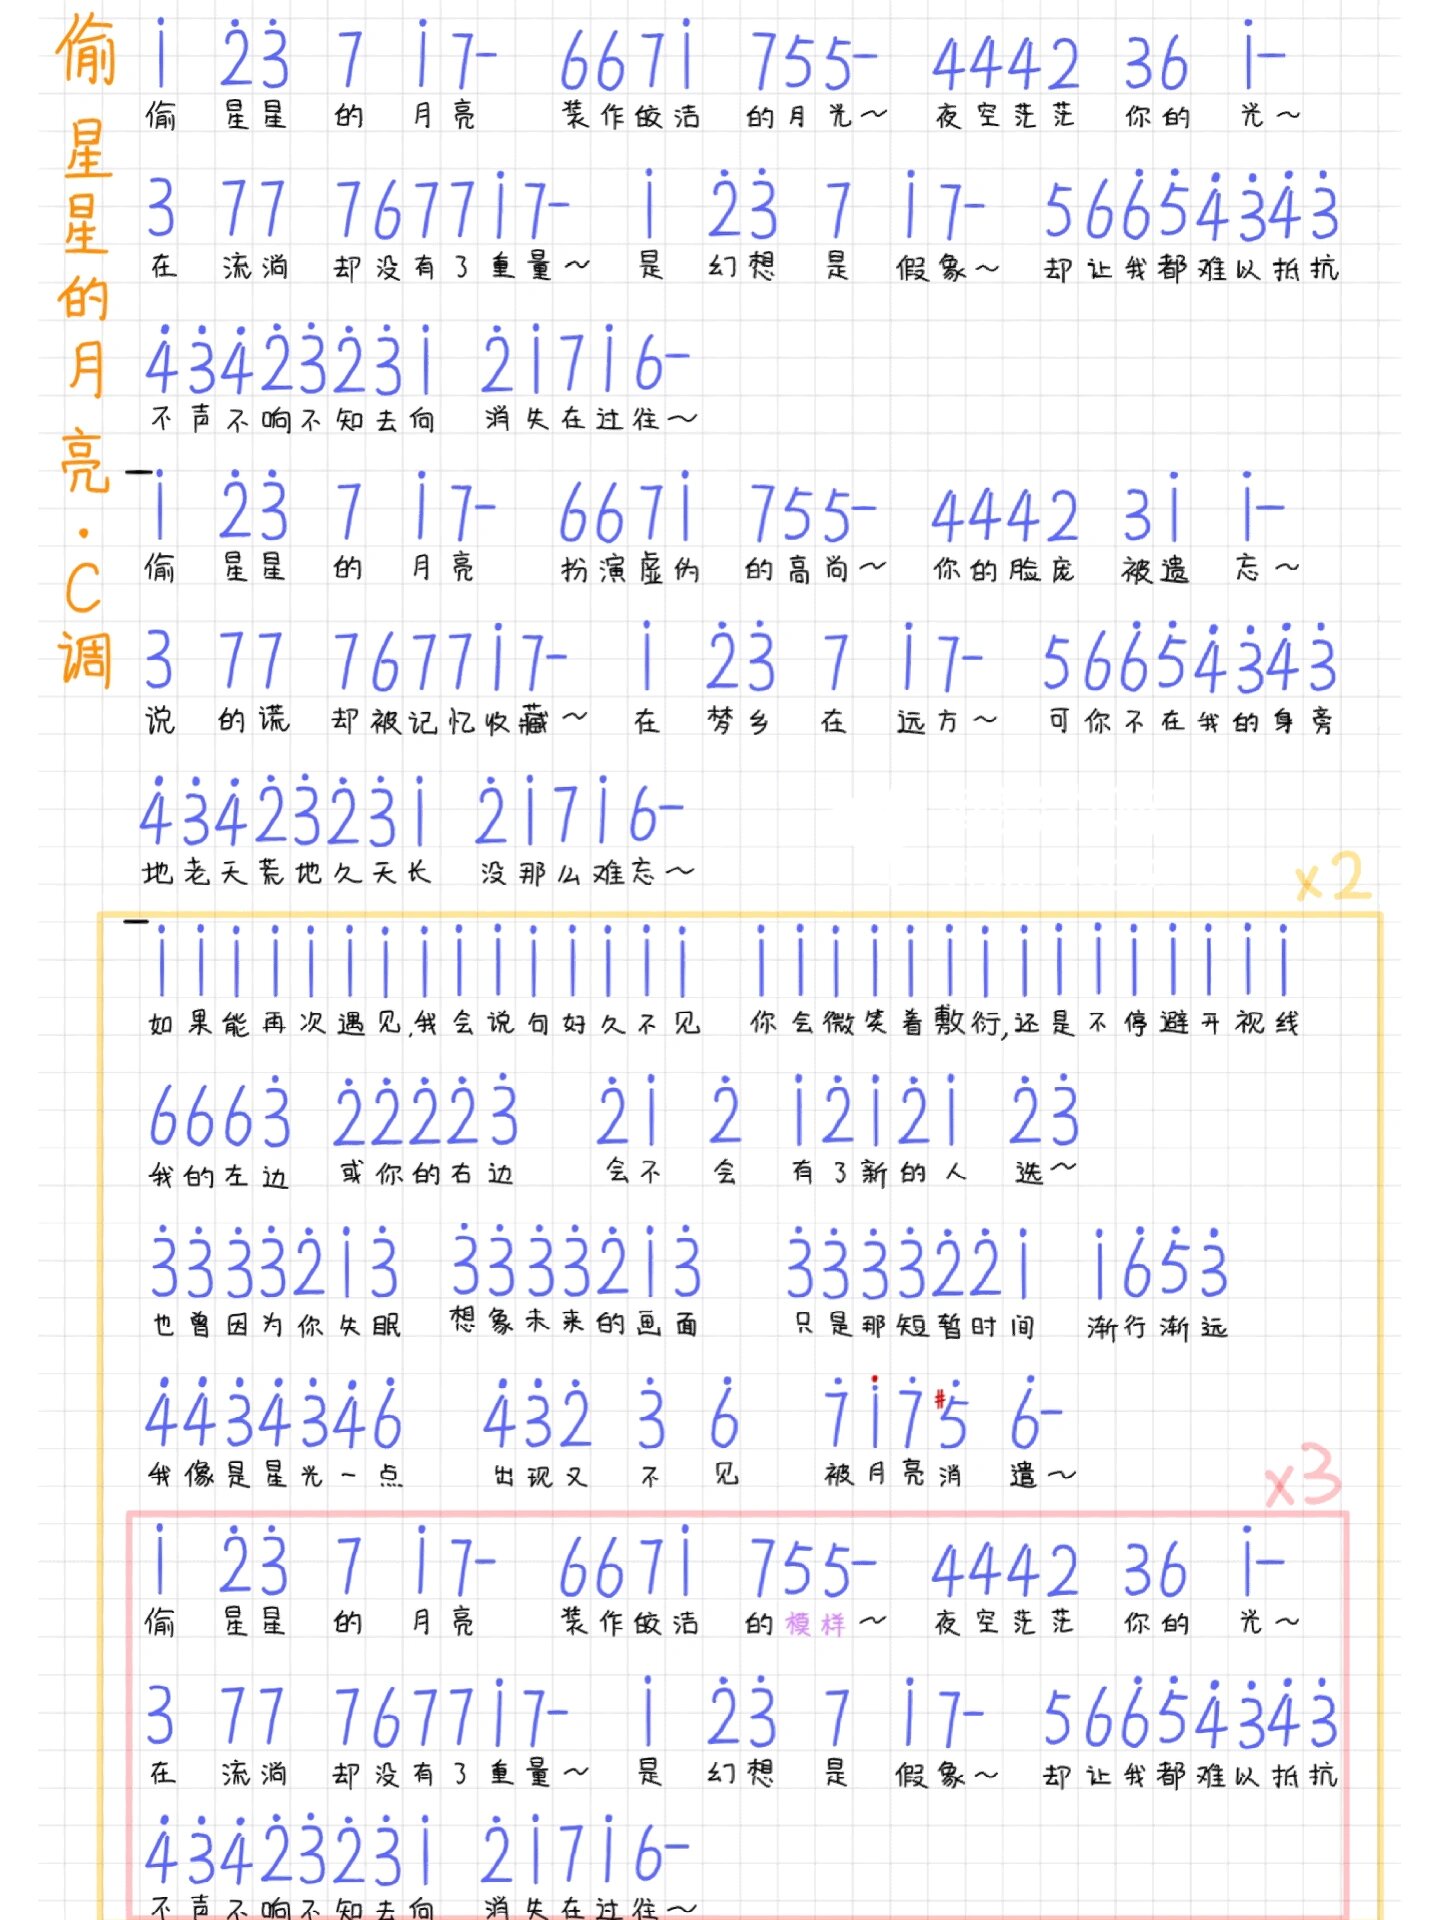 偷星星的月亮·C调
i 2̇3̇ 7 i7- 667i 755- 4442 36 i-
偷 星星 的 月亮 装作皎洁 的月光~ 夜空茫茫 你的 光~
3 77 7677i7- i 2̇3̇ 7 i7- 566̇5̇4̇3̇4̇3̇
在 流淌 却没有了重量~ 是 幻想 是 假象~ 却让我都难以抵抗
4̇3̇4̇2̇3̇2̇3̇i 2̇i7i6-
不声不响不知去向 消失在过往~
i 2̇3̇ 7 i7- 667i 755- 4442 3i i-
偷 星星 的 月亮 扮演虚伪 的高尚~ 你的脸庞 被遗 忘~
3 77 7677i7- i 2̇3̇ 7 i7- 566̇5̇4̇3̇4̇3̇
说 的谎 却被记忆收藏~ 在 梦乡 在 远方~ 可你不在我的身旁
4̇3̇4̇2̇3̇2̇3̇i 2̇i7i6-
地老天荒地久天长 没那么难忘~
x2
iiiiiiiiiiiiiii iiiiiiiiiiiiiii
如果能再次遇见,我会说句好久不见 你会微笑着敷衍,还是不停避开视线
6663̇ 2̇2̇2̇2̇3̇ 2̇i 2̇ i2̇i2̇i 2̇3̇
我的左边 或你的右边 会不 会 有了新的人 选~
3̇3̇3̇3̇2̇i3̇ 3̇3̇3̇3̇2̇i3̇ 3̇3̇3̇3̇2̇2̇i i6̇5̇3̇
也曾因为你失眠 想象未来的画面 只是那短暂时间 渐行渐远
4̇4̇3̇4̇3̇4̇6̇ 4̇3̇2̇ 3̇ 6̇ 7̇i̇7̇#5̇ 6̇-
我像是星光一点 出现又 不 见 被月亮消 遣~
x3
i 2̇3̇ 7 i7- 667i 755- 4442 36 i-
偷 星星 的 月亮 装作皎洁 的模样~ 夜空茫茫 你的 光~
3 77 7677i7- i 2̇3̇ 7 i7- 566̇5̇4̇3̇4̇3̇
在 流淌 却没有了重量~ 是 幻想 是 假象~ 却让我都难以抵抗
4̇3̇4̇2̇3̇2̇3̇i 2̇i7i6-
不声不响不知去向 消失在过往~